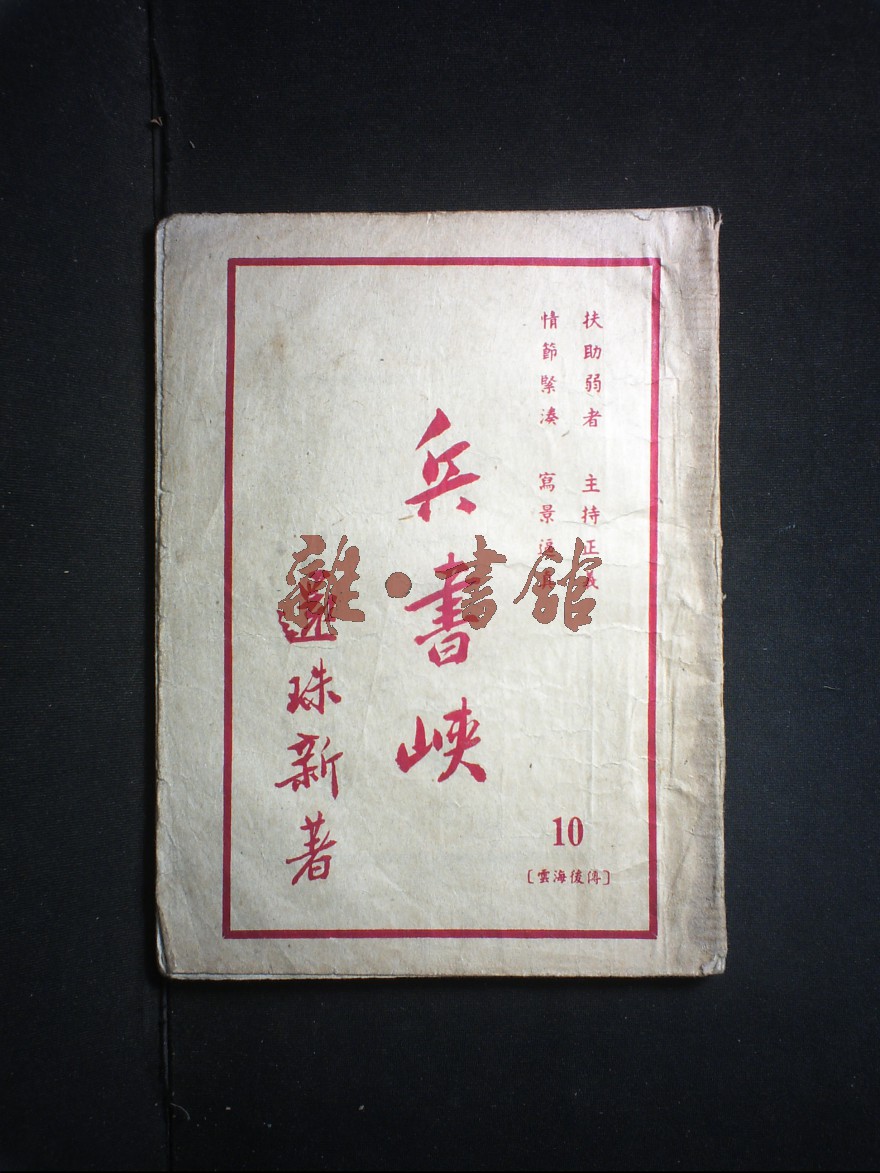 扶助弱者 主持正義
情節緊湊 寫景逼真
兵書峽
還珠新著
10
[雲海後傳]
雜·書館